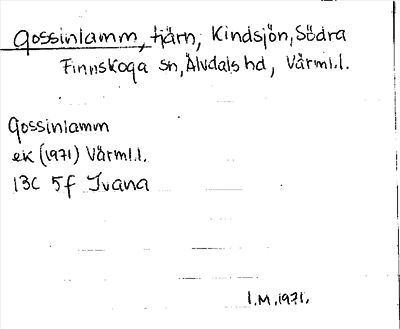 Gossinlamm, tjärn, Kindsjön, Södra
Finnskoga sn, Älvdals hd, Värml.l.
Gossinlamm
ek (1971) Värml.l.
13C 5f Ivana
I.M. 1971.